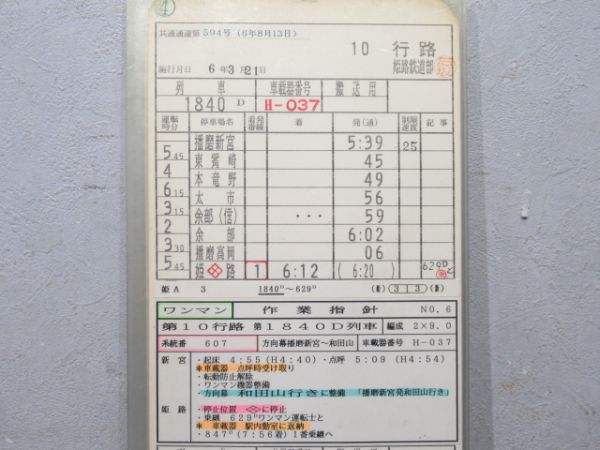 ④
共通通運第594号 (6年8月13日)
10 行路
施行月日 6年3月21日
姫路鉄道部
列車 車載器番号 搬送用
1840D H-037
運転時分 停車場名 着発番線 着 発(通) 制限速度 記事
播磨新宮 5:39 25
5 45
東觜崎 45
4
本竜野 49
6 15
太市 56
3 15
余部(信) ・・・ 59
2
余部 6:02
3 30
播磨高岡 06
5 30
姫路 1 6:12 (6:20) 629D
姫A 3 1840D~629D 3 3
ワンマン 作業指針 NO.6
第10行路 第1840D列車 編成 2×9.0
系統番 607 方向幕播磨新宮~和田山 車載器番号 H-037
新宮 ・起床 4:55 (H4:40) ・点呼 5:09 (H4:54)
*車載器 点呼時受け取り
・転動防止解除
・ワンマン機器整備
・方向幕 和田山行きに整備 「播磨新宮発和田山行き」
姫路 ・停止位置 に停止
・乗継 629Dワンマン運転士と
* 車載器 駅内勤室に返納
・847D(7:56着)1番乗継へ